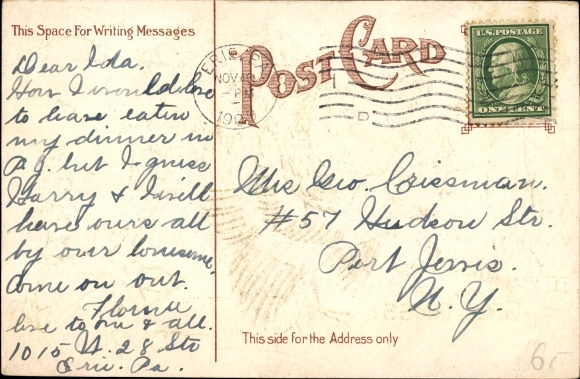 This Space For Writing Messages
POST CARD
U.S. POSTAGE
ONE CENT
ERIE, PA.
NOV
PM
D
Dear Ida.
How I would love
to have eaten
my dinner in
P.J. but I guess
Harry & I will
have ours all
by our lonesome,
Come on out.
Florence
love to one & all.
1015 W. 28 Str
Erie. Pa.
Mrs Geo. Crissman.
#57 Hudson Str.
Port Jervis.
N.Y.
This side for the Address only
65